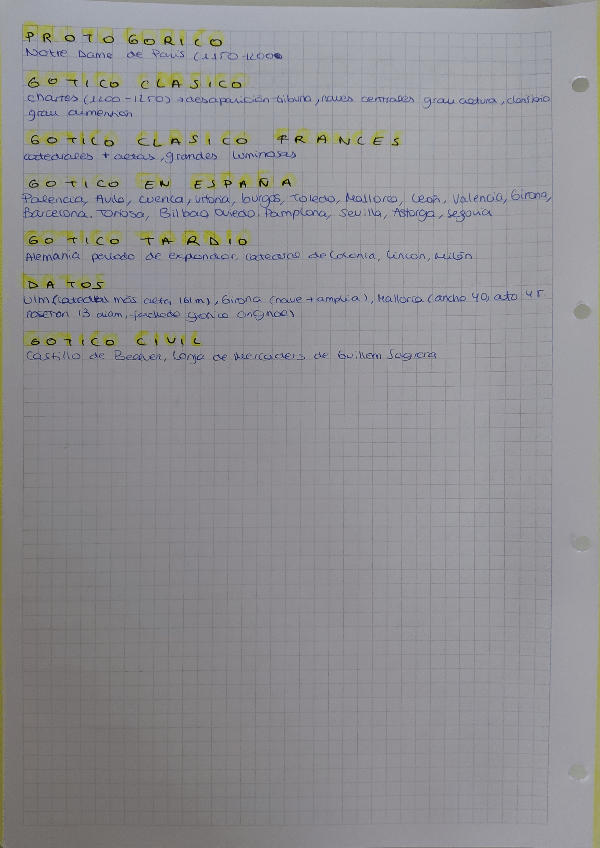 PROTO GORICO
Notre Dame de París (1150-1200
GOTICO CLASICO
Chartres (1200-1250) → desaparición tribuna, naves centrales gran altura, claristorio
gran dimensión
GOTICO CLASICO FRANCES
catedrales + altas, grandes luminosas
GOTICO EN ESPAÑA
Palencia, Avila, Cuenca, Vitoria, burgos, Toledo, Mallorca, León, Valencia, Girona,
Barcelona, Tortosa, Bilbao, Oviedo, Pamplona, Sevilla, Astorga, Segovia
GOTICO TARDIO
Alemania período de expansión, catedrales de Colonia, Lincon, Milán
DATOS
Ulm (catedral más alta, 161m), Girona (nave + amplia), Mallorca (ancho 40, alto 45
roseton 13 diam, fachada original)
GOTICO CIVIL
Castillo de Bellver, Lonja de Mercaders de Guillem Sagrera